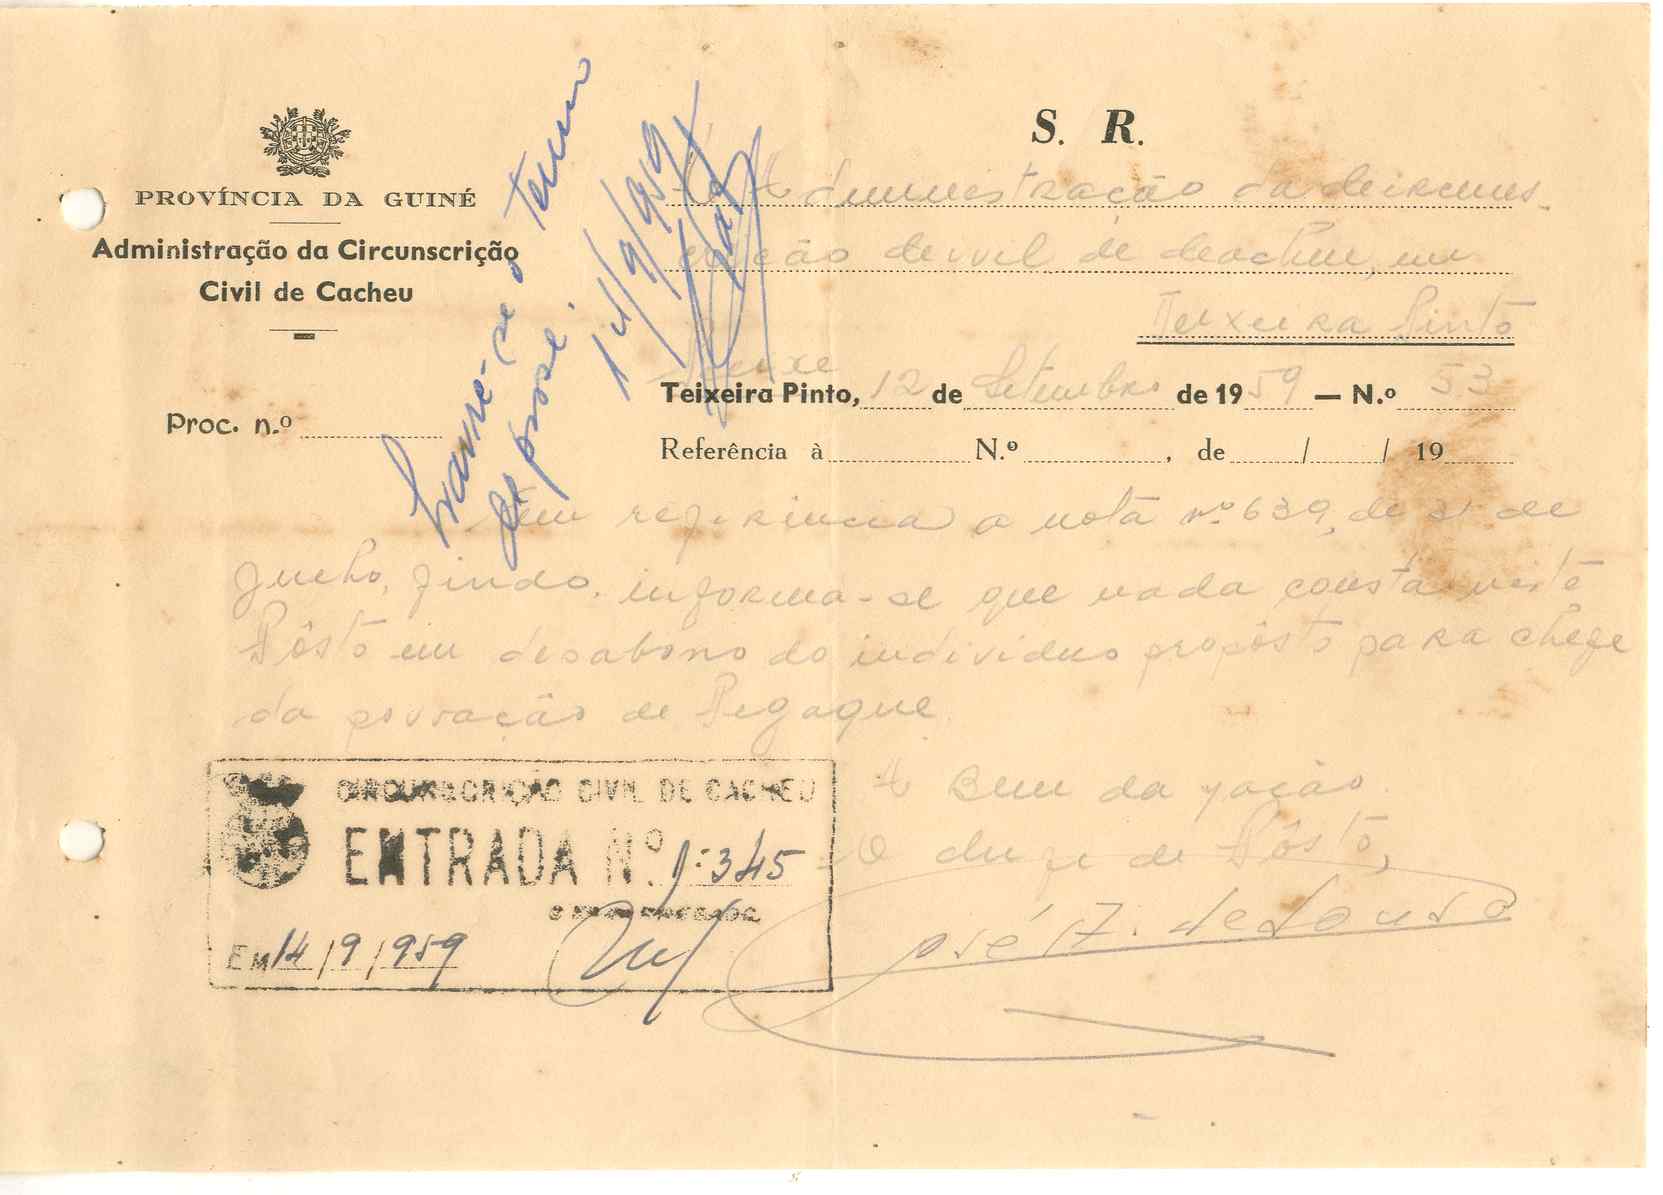 PROVÍNCIA DA GUINÉ
Administração da Circunscrição
Civil de Cacheu
Proc. n.º
S. R.
À Administração da Circuns-
crição Civil de Cacheu, em
Teixeira Pinto
Teixeira Pinto, 12 de Setembro de 1959 — N.º 53
Referência à N.º , de / / 19
Lavre-se o termo
de posse.
14/9/959
Com referencia a nota nº 639, de 31 de
Julho, findo, informa-se que nada consta neste
Pôsto em desabono do individuo propôsto para chefe
da povoação de Pegaque.
A Bem da Nação
O chefe de Pôsto,
José A. de Sousa
CIRCUNSCRIÇÃO CIVIL DE CACHEU
ENTRADA N.º 1:345
EM 14/9/959